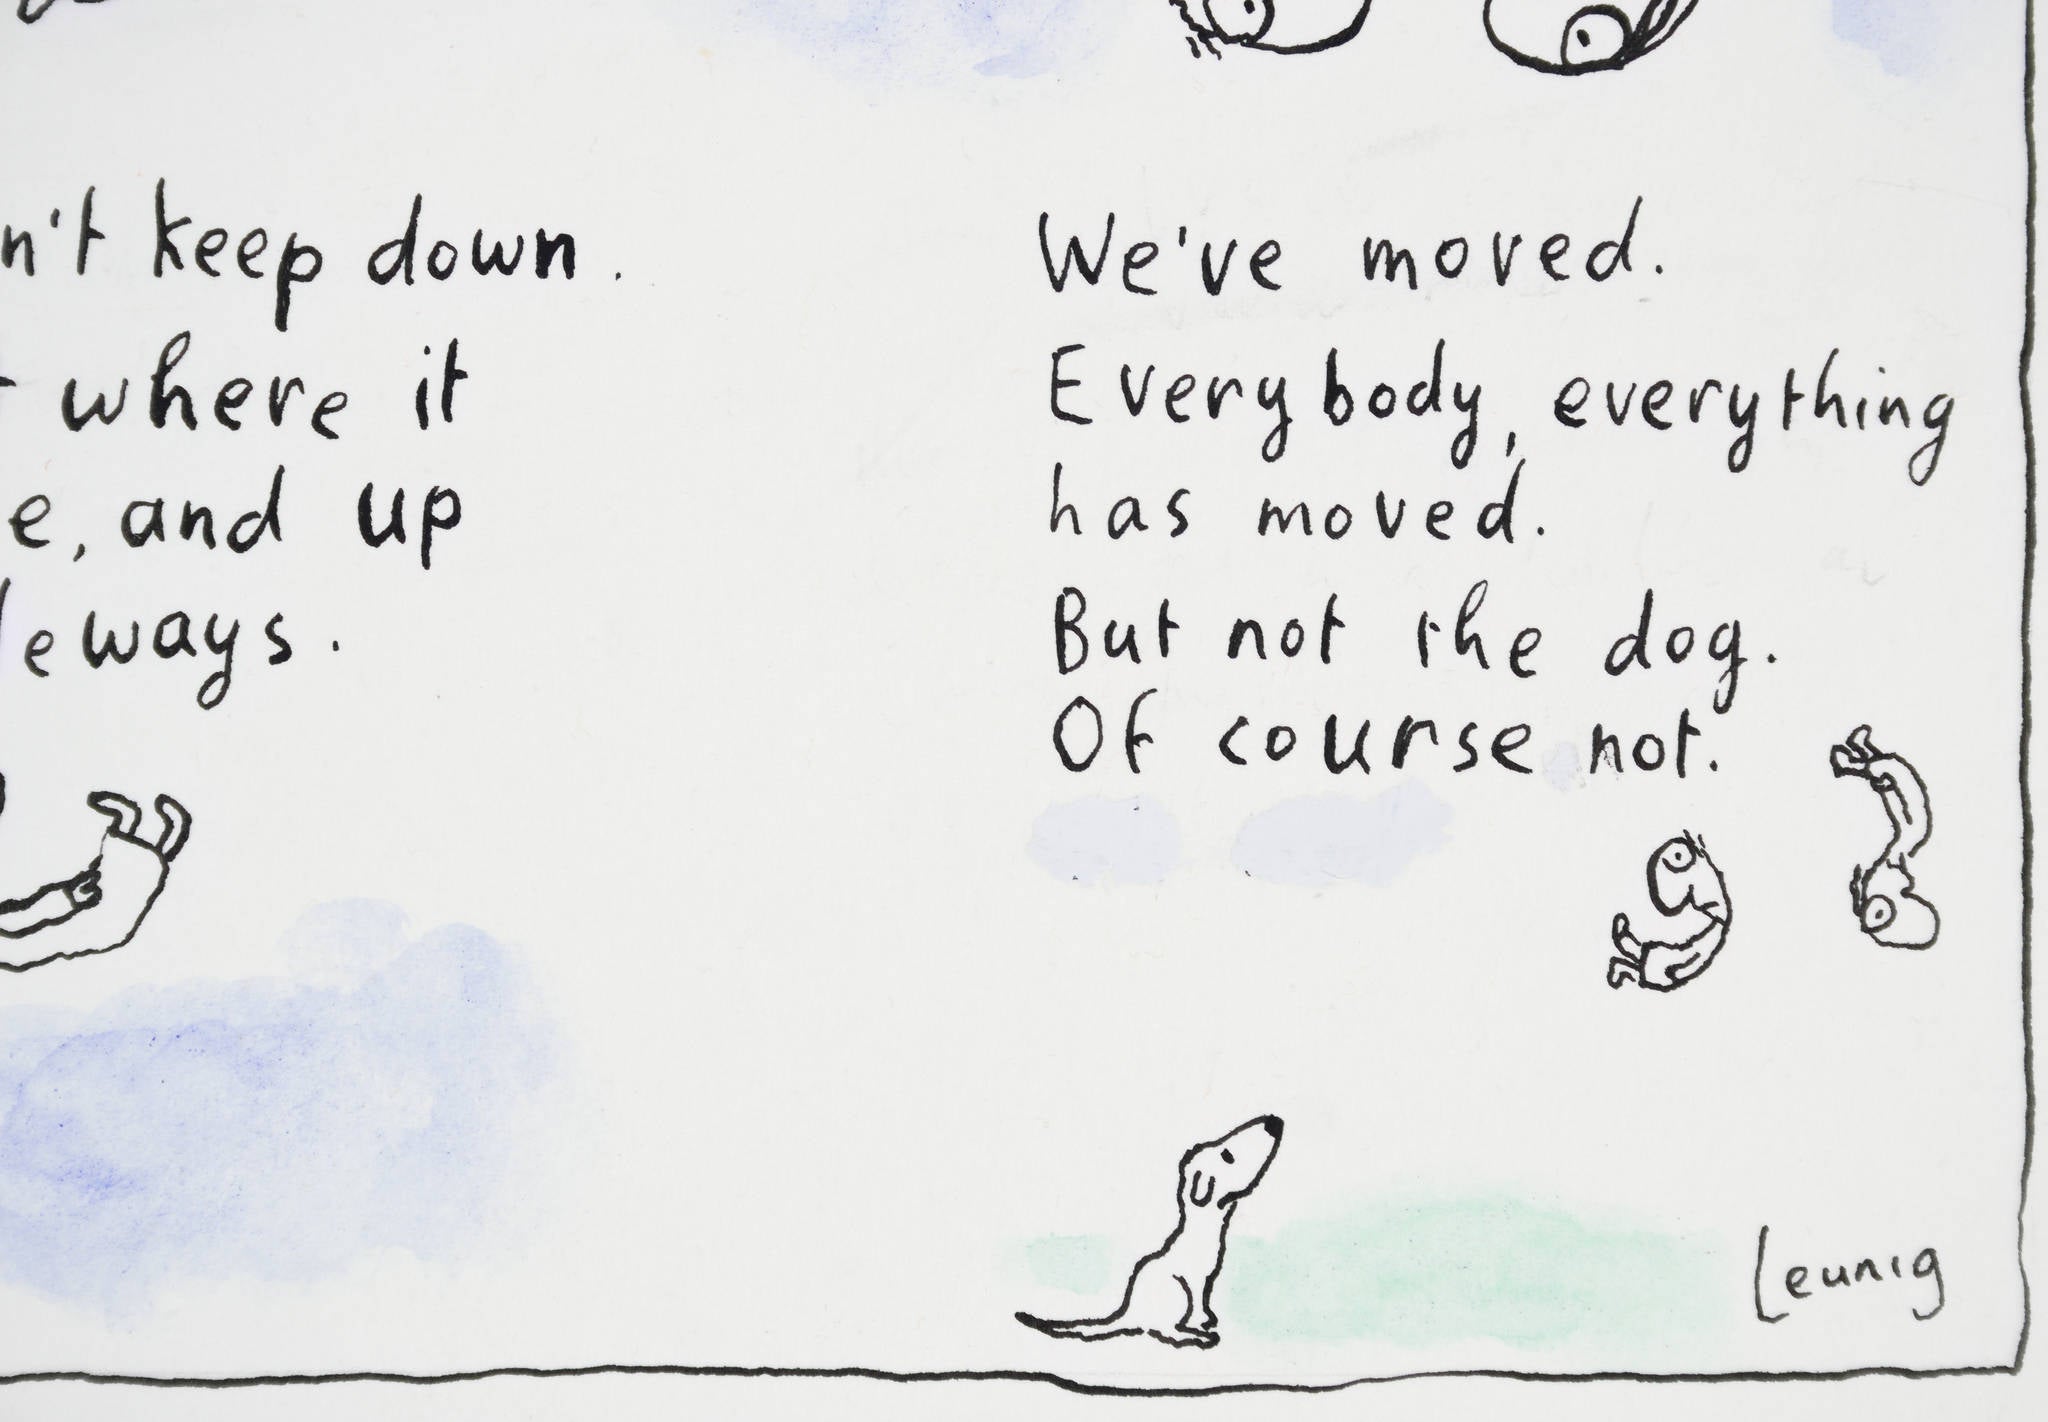 n't keep down.
where it
e, and up
eways.
We've moved.
Everybody, everything
has moved.
But not the dog.
Of course not.
Leunig